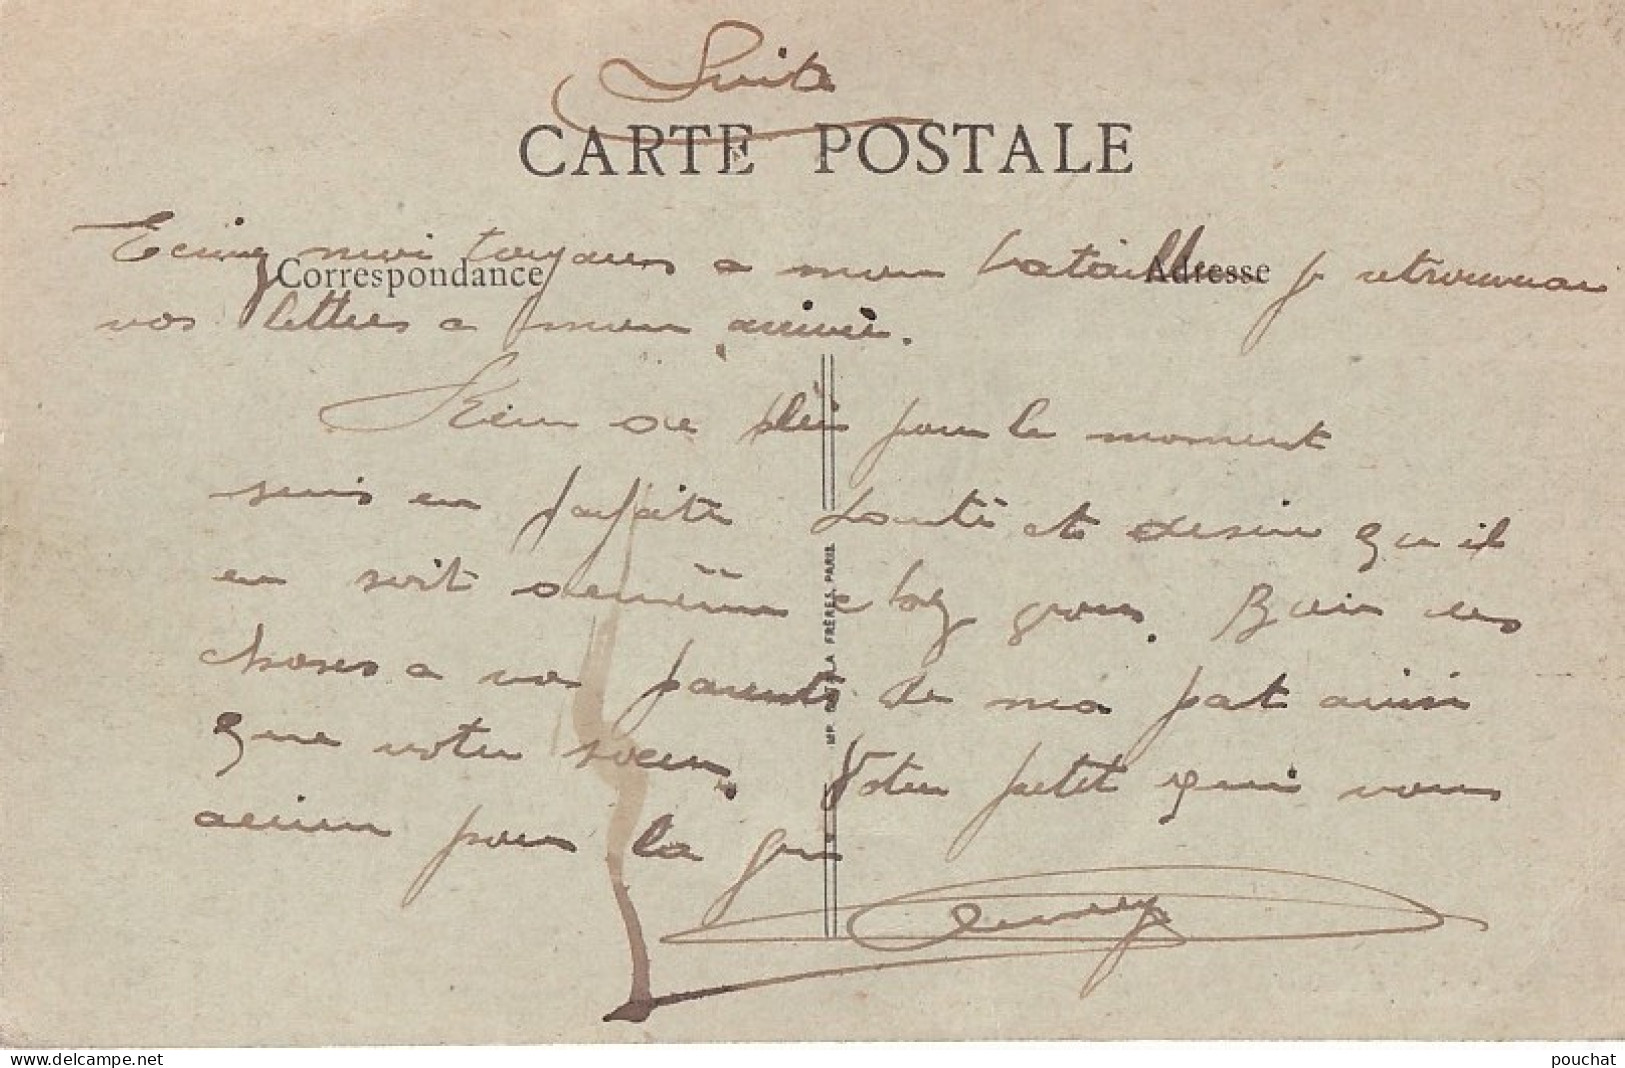 Suite
CARTE POSTALE
Correspondance
Adresse
Ecrivez moi toujours a mon bataillon je retrouverai
vos lettres a mon arrivée.
Rien de plus pour le moment
suis en parfaite santé et desire qu il
en soit de même chez vous. Bien des
choses a vos parents de ma part ainsi
que votre soeur. Votre petit qui vous
aime pour la
FRÈRES, PARIS
pouchat